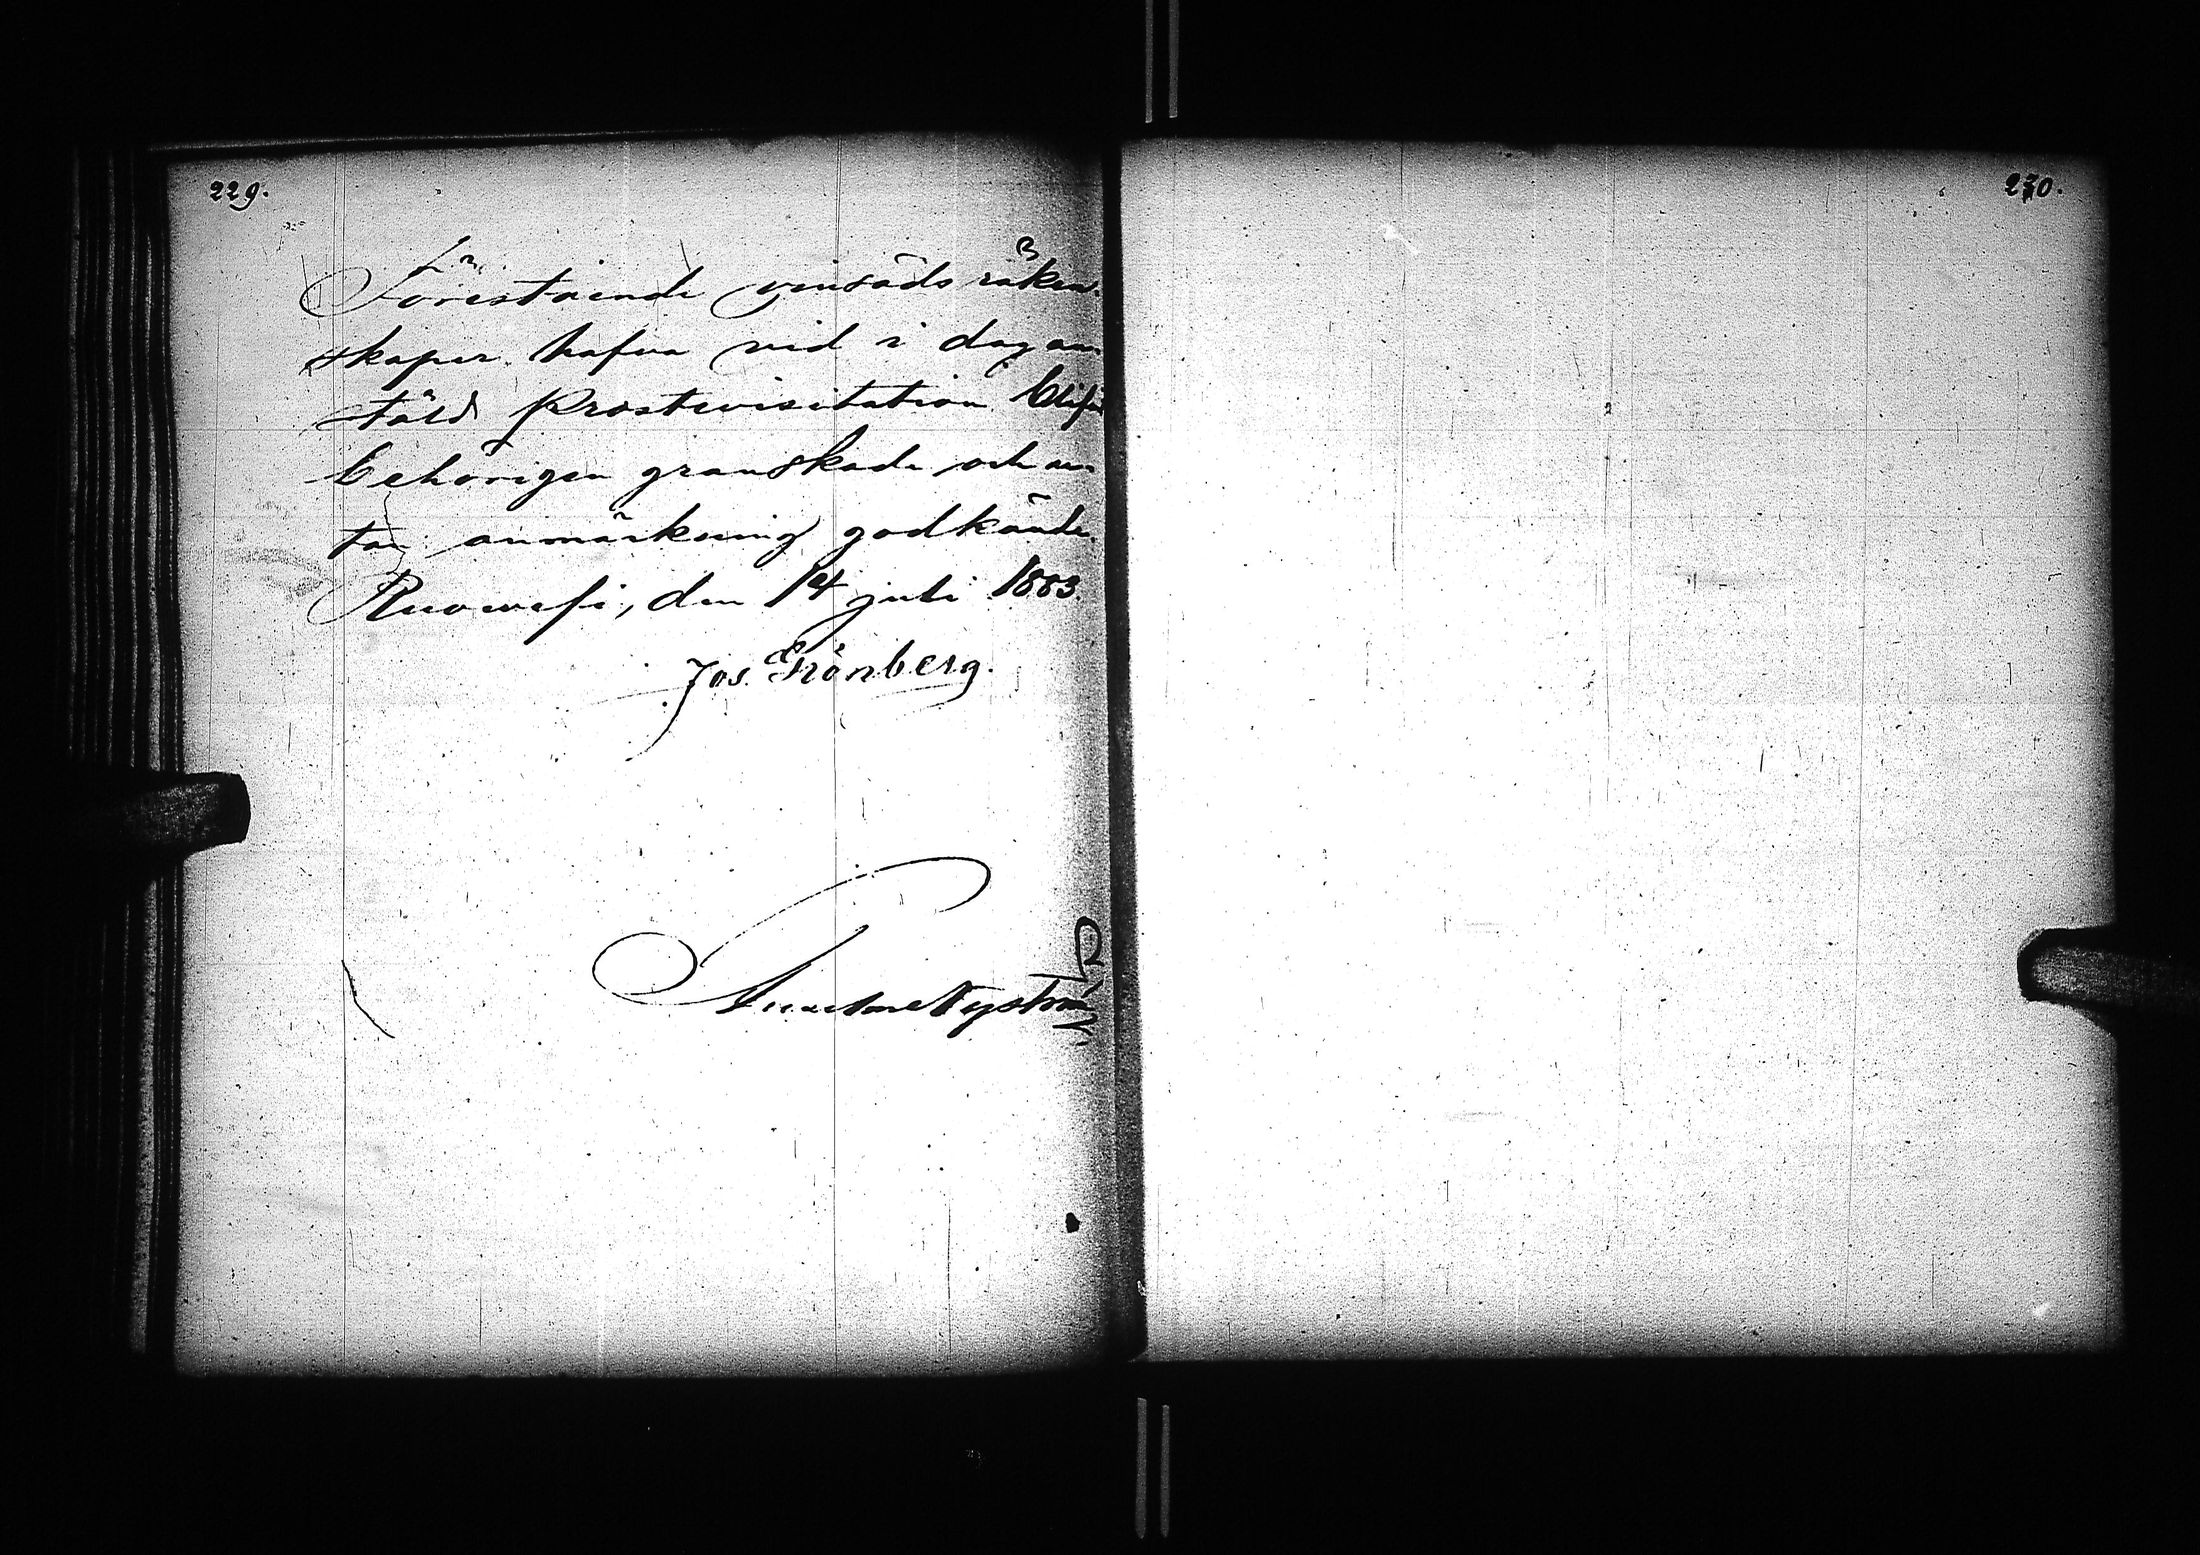 229.
270.
Förestående vinsäds räken-
skaper hafva vid i dag an-
stäld Prostvisitation blifvit
behörigen granskade och u-
tan anmärkning godkände.
Ruovesi, den 14 juli 1883.
Jos. Grönberg.
Nyström